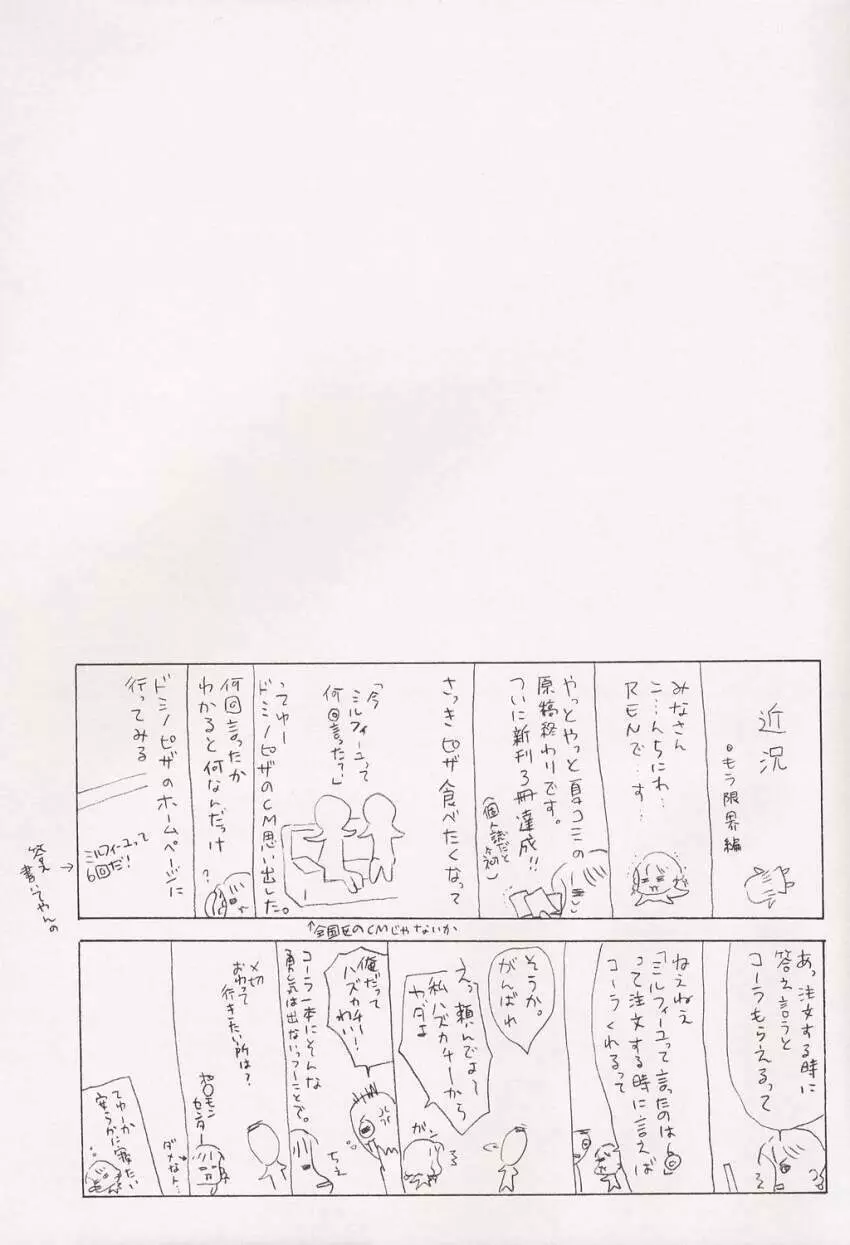 近況
。もう限界編
みなさん
こ…んちにわ…
RENで…す…
やっとやっと夏コミの
原稿終わりです。
ついに新刊3冊達成!!
(個人誌だと
さっきピザ食べたくなって
「今
ミルフィーユって
何回言った?」
ってゆー
ドミノピザのCM思い出した。
↑全国区のCMじゃないか
何回言ったか
わかると何なんだっけ?
ドミノピザのホームページに
行ってみる
ミルフィーユって
6回だ!
答え
書いてやんの
あっ注文する時に
答え言うと
コーラもらえるって
ねえねえ
「ミルフィーユって言ったのは6回」
って注文する時に言えば
コーラくれるって
そうか。
がんばれ
えっ頼んでよ〜
私ハズカチーから
ヤダよ
ガン
俺だって
ハズカチー!
わい!
コーラ一本にそんな
勇気は出ないっつーことで。
ちぇ
〆切
おわって
行きたい所は?
センター
ダメな人…
てゆーか
安らかに寝たい